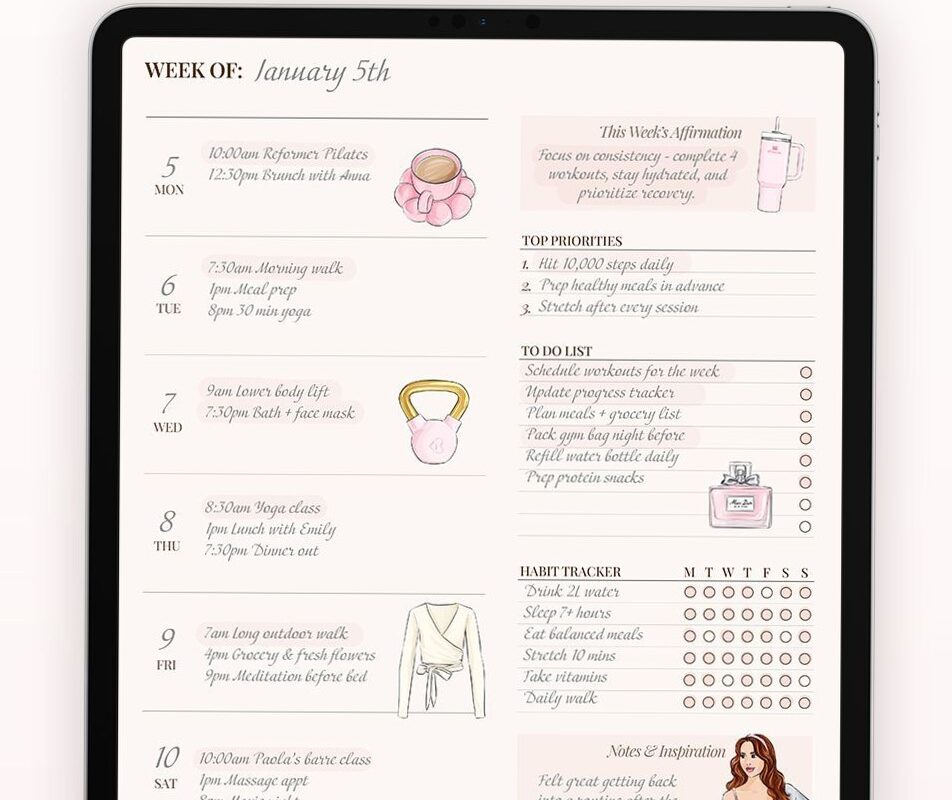 WEEK OF: January 5th
5
MON
10:00am Reformer Pilates
12:30pm Brunch with Anna
6
TUE
7:30am Morning walk
1pm Meal prep
8pm 30 min yoga
7
WED
9am Lower body lift
7:30pm Bath + face mask
8
THU
8:30am Yoga class
1pm Lunch with Emily
7:30pm Dinner out
9
FRI
7am Long outdoor walk
4pm Grocery & fresh flowers
9pm Meditation before bed
10
SAT
10:00am Paola's barre class
1pm Massage appt
This Week's Affirmation
Focus on consistency - complete 4
workouts, stay hydrated, and
prioritize recovery.
TOP PRIORITIES
1. Hit 10,000 steps daily
2. Prep healthy meals in advance
3. Stretch after every session
TO DO LIST
Schedule workouts for the week
Update progress tracker
Plan meals + grocery list
Pack gym bag night before
Refill water bottle daily
Prep protein snacks
Miss Dior
HABIT TRACKER M T W T F S S
Drink 2L water
Sleep 7+ hours
Eat balanced meals
Stretch 10 mins
Take vitamins
Daily walk
Notes & Inspiration
Felt great getting back
into a routine after the